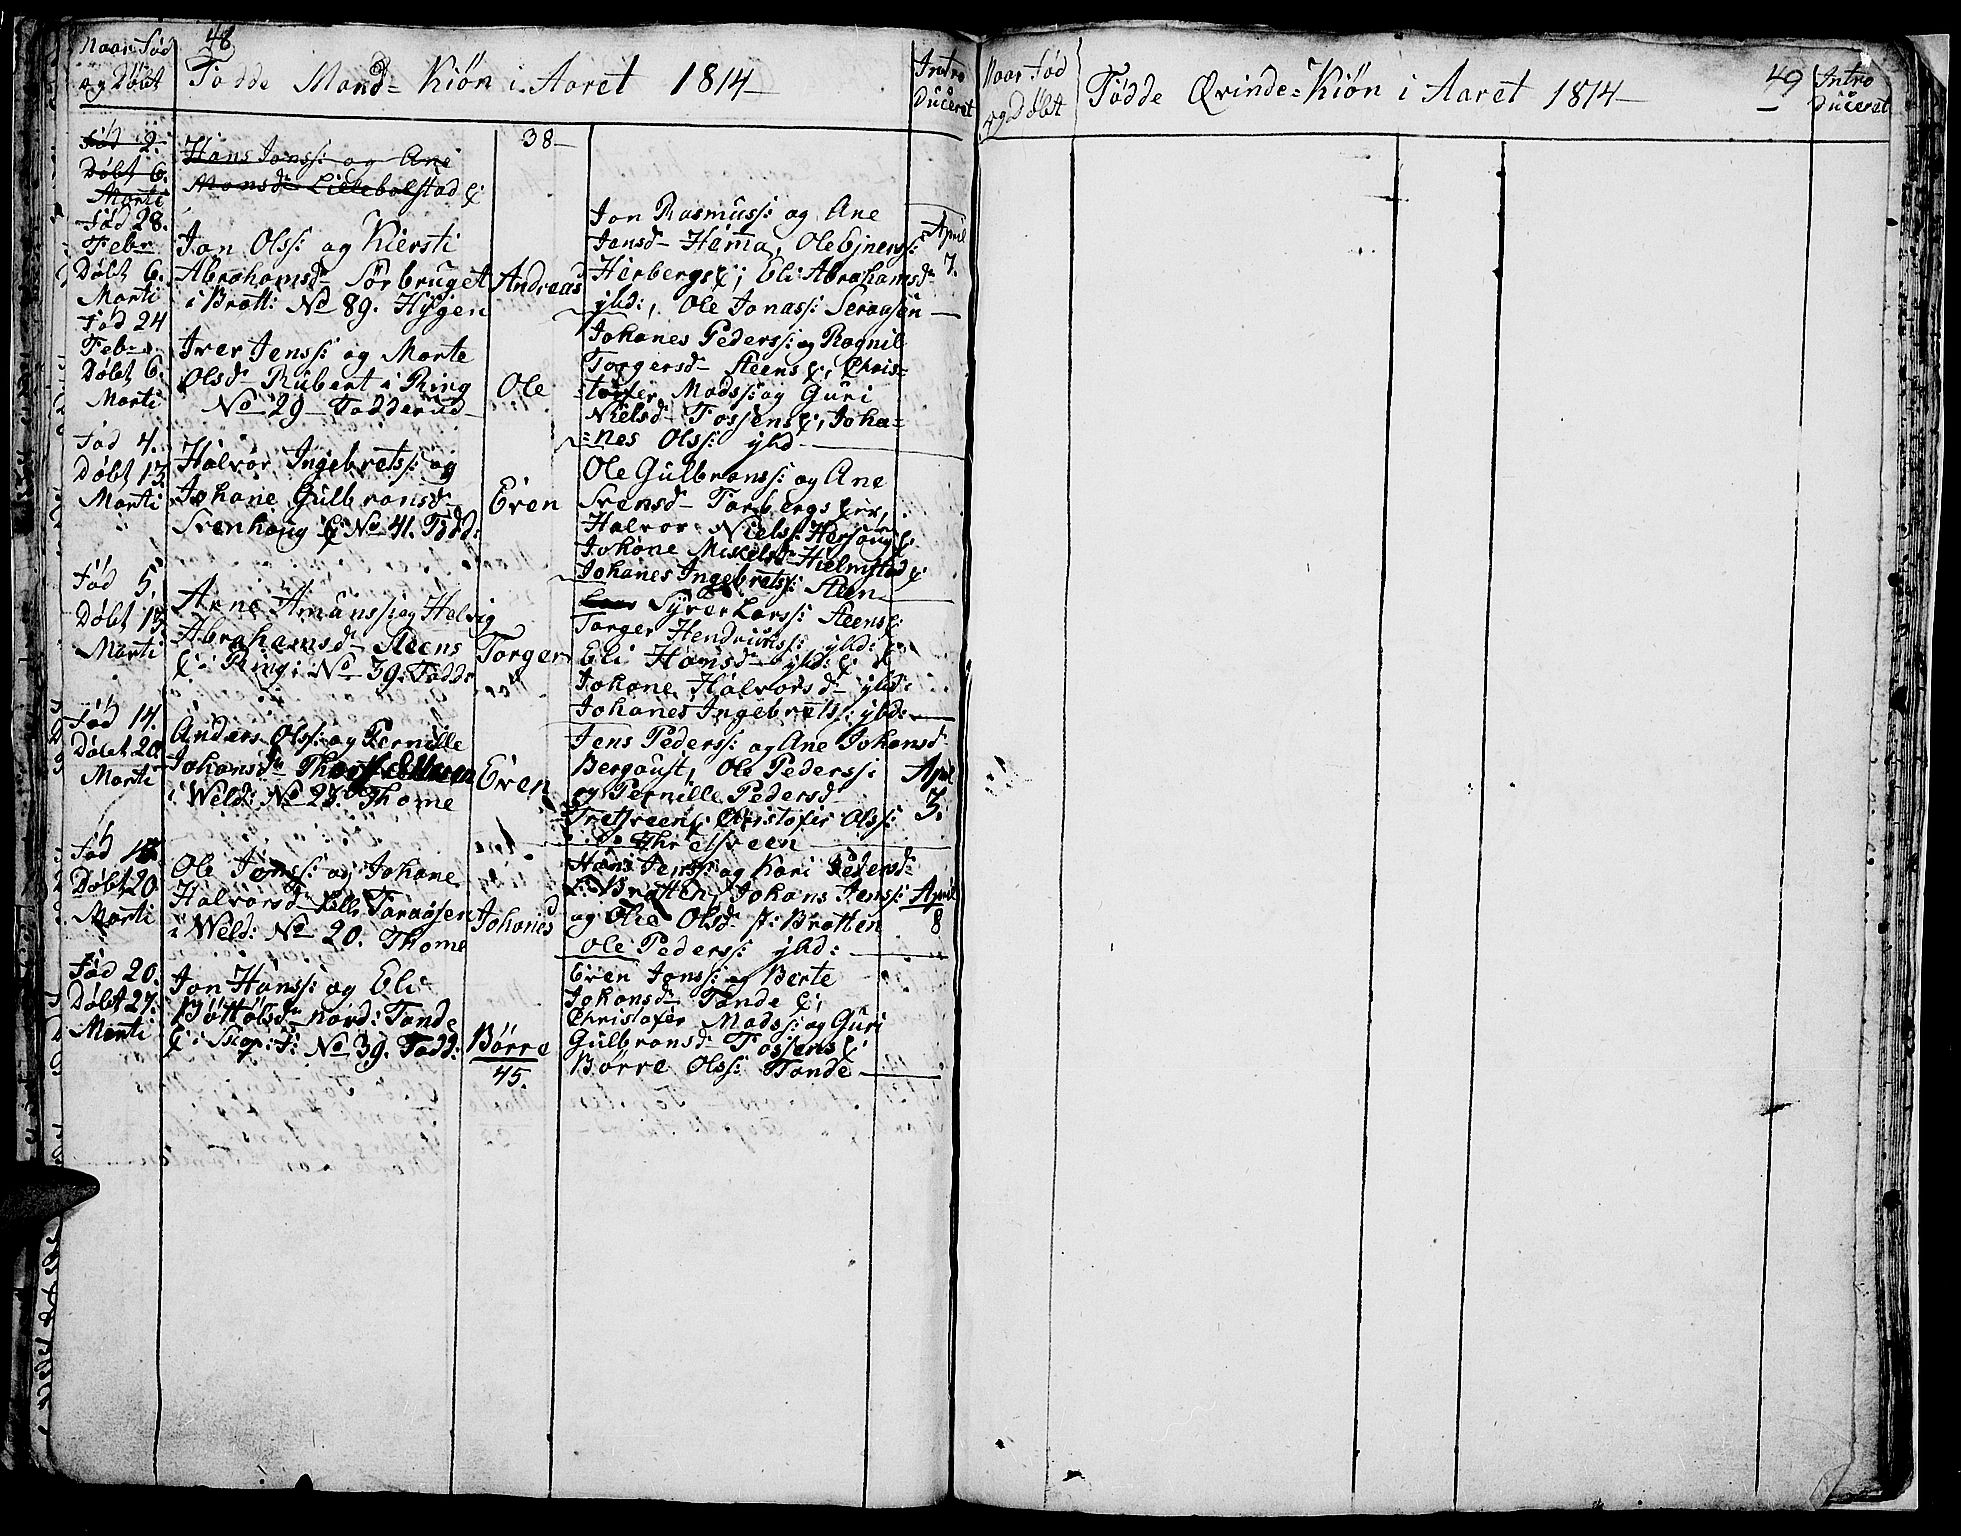 48
Naar Fød
og Døbt
Fødde Mand=Kiøn i Aaret 1814
Intro
duceret
38
Fød 2.
Døbt 6.
Marti
Hans Jonss: og Ane
Monsd Lillebolstad E:
Fød 28.
Febr
Døbt 6.
Marti
Jon Olss: og Kiersti
Abrahamsd Sørbruget
i Brøtt: No 89. Hygen
Andreas
Jon Rasmuss: og Ane
Jonsd Hama, Ole Ejnerss:
Herbergs E; Eli Abrahamsd
ybd:, Ole Jonass: Seraasen
April
7.
Fød 24
Febr
Døbt 6.
Marti
Iver Jenss: og Marte
Olsd Rubert i Ring
No 29 Fodderud
Ole
Johanes Pederss: og Ragnil
Torgersd Steens E, Chris=
=tofer Madss: og Guri
Nielsd Fossens E, Joha=
=nes Olss: ybd
Fød 4.
Døbt 13.
Marti
Halvor Ingebretss: og
Johane Gulbransd
Svenhaug E No 41. Fodd:
Even
Ole Gulbranss: og Ane
Svensd Torbergs Eier,
Halvor Nielss: Hersoug E:
Johane Mikelsd Hielmstad E:
Johanes Ingebretss: Steen
Fød 5.
Døbt 13.
Marti
Arne Amunss: og Helvig
Abrahamsd Steens
E: i Ring: No 39. Fodd:
Torger
Syver Larss: Steens E:
Torger Hendrickss: ybd:
Eli Hansd ybd: E:
Johane Halvorsd ybd:
Johanes Ingebretss: ybd:
Fød 14.
Døbt 20
Marti
Anders Olss: og Pernille
Johansd
i Weld: No 28. Thome
Even
Jens Pederss: og Ane Johansd
Bergaust, Ole Pederss:
og Pernille Pedersd
Christofer Olss:
April
3.
Fød 18.
Døbt 20
Marti
Ole Jonss: og Johane
Halvorsd Lille Taraasen
i Weld: No 20. Thome
Johanes
Hans Jenss: og Kari Pedersd
Brøtten, Johans Jenss:
og Olea Olsd st: Brøtten
Ole Pederss: ybd:
April
8
Fød 20.
Døbt 27.
Marti
Jon Hanss: og Eli
Bøttolsd nord: Tande
E: i Skop: F: No 39. Fodd:
Børre
45.
Even Jonss: og Berte
Johansd Tande E:,
Christofer Madss: og Guri
Gulbransd Fossens E:
Børre Olss: Tande
Naar Fød
og Døbt
Fødde Qvinde=Kiøn i Aaret 1814
49
Intro
duceret